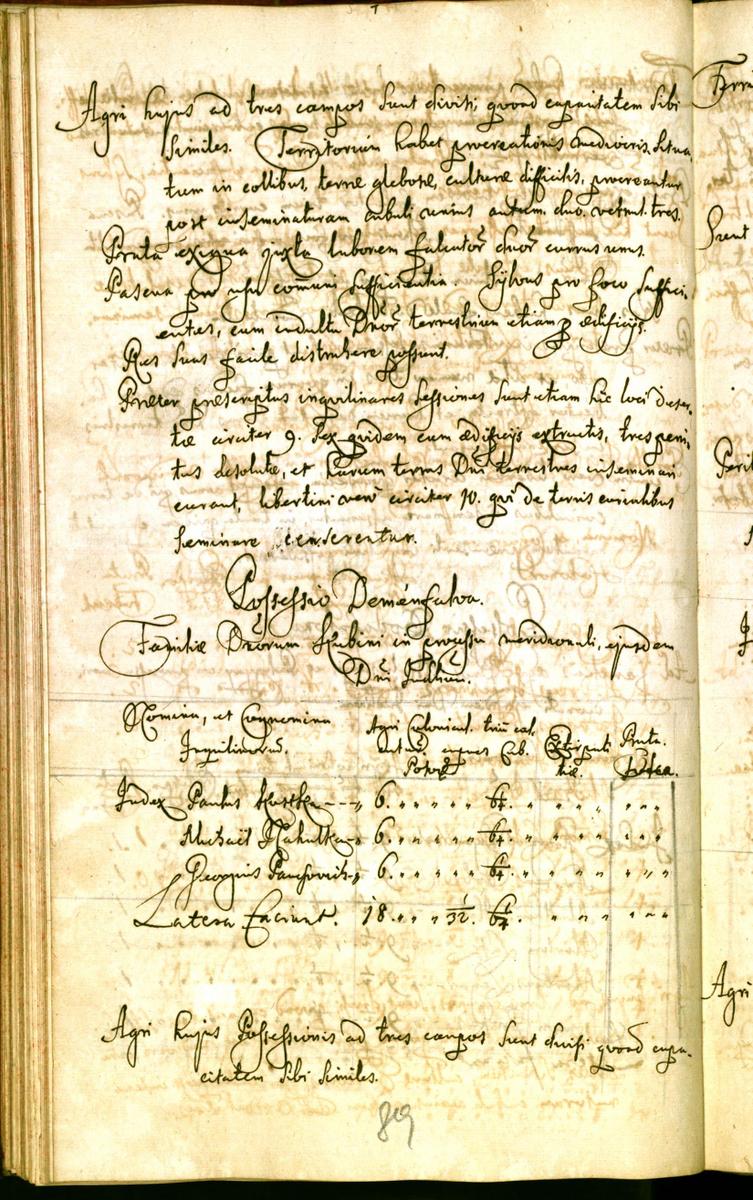 Agri hujus ad tres campos sunt divisi, quoad capacitatem sibi
similes. Territorium habet procreationis mediocris, situa
tum in collibus, terræ glebosæ, culturæ difficilis, procreantur
post inseminaturam cubuli unius autum. duo. vernal. tres.
Prata exigua juxta laborem falcator duor currus unus.
Pascua pro usu comuni sufficientia. Sylvas pro foco suffici,
entes, cum indultu Dnor terrestrium etiam p ædificijs.
Res suas facile distrahere possunt.
Præter præscriptas inquilinares sessiones sunt etiam hic loci deser,
tæ circiter 9. sex quidem cum ædificijs extructis, tres peni,
tus desolatæ, et harum terras Dni terrestres inseminari
curant, libertini vero circiter 10. qui de terris curialibus
seminare censerentur.
Possessio Deménfalva.
Familiæ Dnorum Kubini in processu meridionali, ejusdem
Dni Judlium.
Nomina, et Cognomina
Inquilinorum.
Agri Colonical. trium cal.
caturar. capaces Cub.
Poson
Extirpati
tiæ.
Prata.
Judex Paulus Kostka --- 6. 6/4.
Michaël Mahutka 6. 6/4.
Georgius Pausovich 6. 6/4.
Latera Faciunt. 18. 1/32. 6 1/4.
Agri hujus Possessionis ad tres campos sunt divisi quoad capa,
citatem sibi similes.
89